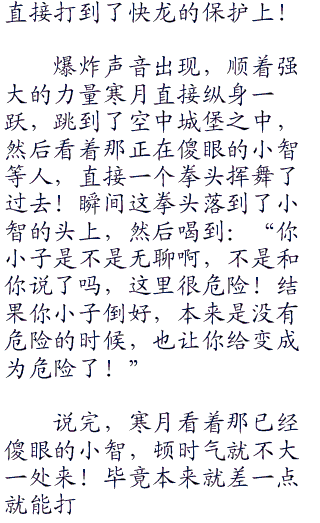 直接打到了快龙的保护上！
爆炸声音出现，顺着强
大的力量寒月直接纵身一
跃，跳到了空中城堡之中，
然后看着那正在傻眼的小智
等人，直接一个拳头挥舞了
过去！瞬间这拳头落到了小
智的头上，然后喝到：“你
小子是不是无聊啊，不是和
你说了吗，这里很危险！结
果你小子倒好，本来是没有
危险的时候，也让你给变成
为危险了！”
说完，寒月看着那已经
傻眼的小智，顿时气就不大
一处来！毕竟本来就差一点
就能打